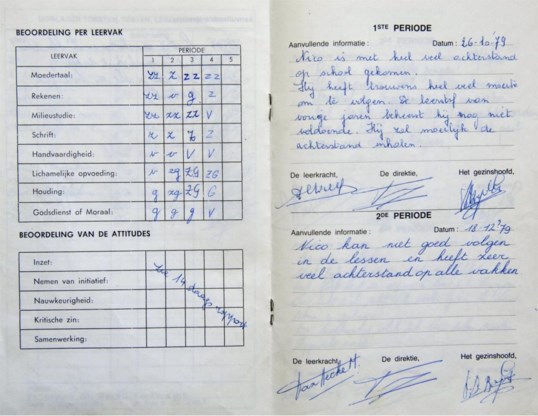 BEOORDELING PER LEERVAK
LEERVAK PERIODE
1 2 3 4 5
Moedertaal: zz z zz zz
Rekenen: zz v g z
Milieustudie: zz zz zz V
Schrift: z z z z
Handvaardigheid: v v V V
Lichamelijke opvoeding: v zg ZG ZG
Houding: g zg ZG G
Godsdienst of Moraal: g g g V
BEOORDELING VAN DE ATTITUDES
Inzet:
Nemen van initiatief:
Nauwkeurigheid:
Kritische zin:
Samenwerking:
Zie 14 daags rapport
1STE PERIODE
Aanvullende informatie : Datum : 26-10-'79
Nico is met heel veel achterstand
op school gekomen.
Hij heeft trouwens heel veel moeite
om te volgen. De leerstof van
vorige jaren beheerst hij nog niet
voldoende. Hij zal moeilijk de
achterstand inhalen.
De leerkracht, De direktie, Het gezinshoofd,
2DE PERIODE
Aanvullende informatie : Datum : 18-12-'79
Nico kan niet goed volgen
in de lessen en heeft zeer
veel achterstand op alle vakken
De leerkracht, De direktie, Het gezinshoofd,